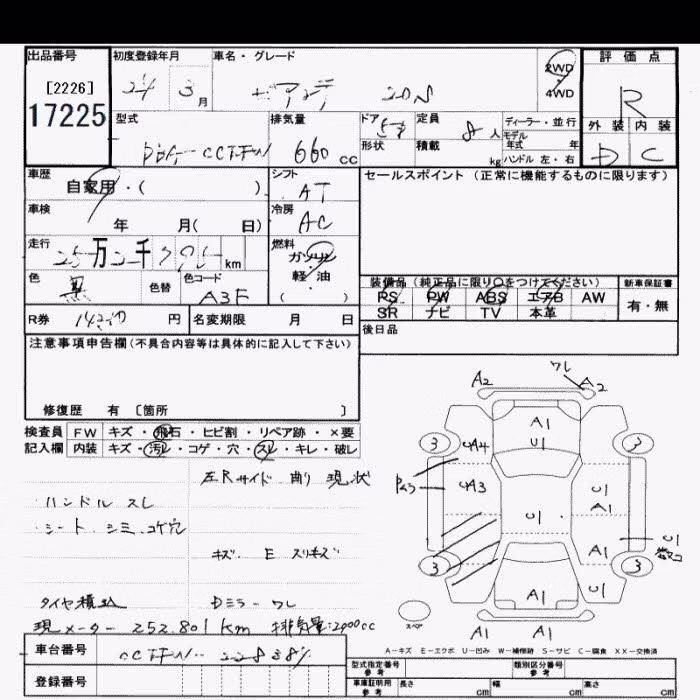 出品番号 初度登録年月 車名・グレード 2WD 4WD 評価点
[2226] 24 3月 20N R
17225
型式 排気量 ドア 定員 ディーラー・並行 外装 内装
660cc 形状 積載 8人 kg モデル年式 年 ハンドル 左・右 D C
車歴 自家用・( ) シフト AT セールスポイント(正常に機能するものに限ります)
車検 年 月( 日) 冷房 AC
走行 25万2千795km 燃料 ガソリン 軽・油 ( )
色 黒 色替 色コード A3F
装備品(純正品に限り○をつけてください) 新車保証書
PS PW ABS エアB AW 有・無
SR ナビ TV 本革
R券 円 名変期限 月 日 後日品
注意事項申告欄(不具合内容等は具体的に記入して下さい)
修復歴 有 〔箇所 〕
検査員 FW キズ・飛石・ヒビ割・リペア跡・×要
記入欄 内装 キズ・汚レ・コゲ・穴・スレ・キレ・破レ
左Rサイド 削り 現状
・ハンドル スレ
・シート、シミ、コゲ穴
キズ、E スリキズ
タイヤ積込 Dミラーワレ
現メーター 252.801Km 排気量:2000cc
ワレ
A2 A2
A1
U1
3 A4 3
A3 U1
A1
U1
U1
3 A1 3
A1 U1
スペア A1 A1
A－キズ E－エクボ U－凹み W－補修跡 S－サビ C－腐食 XX－交換済
車台番号
登録番号
型式指定番号 参考 類別区分番号 参考
車庫証明用 参考 長さ cm 幅 cm 高さ cm